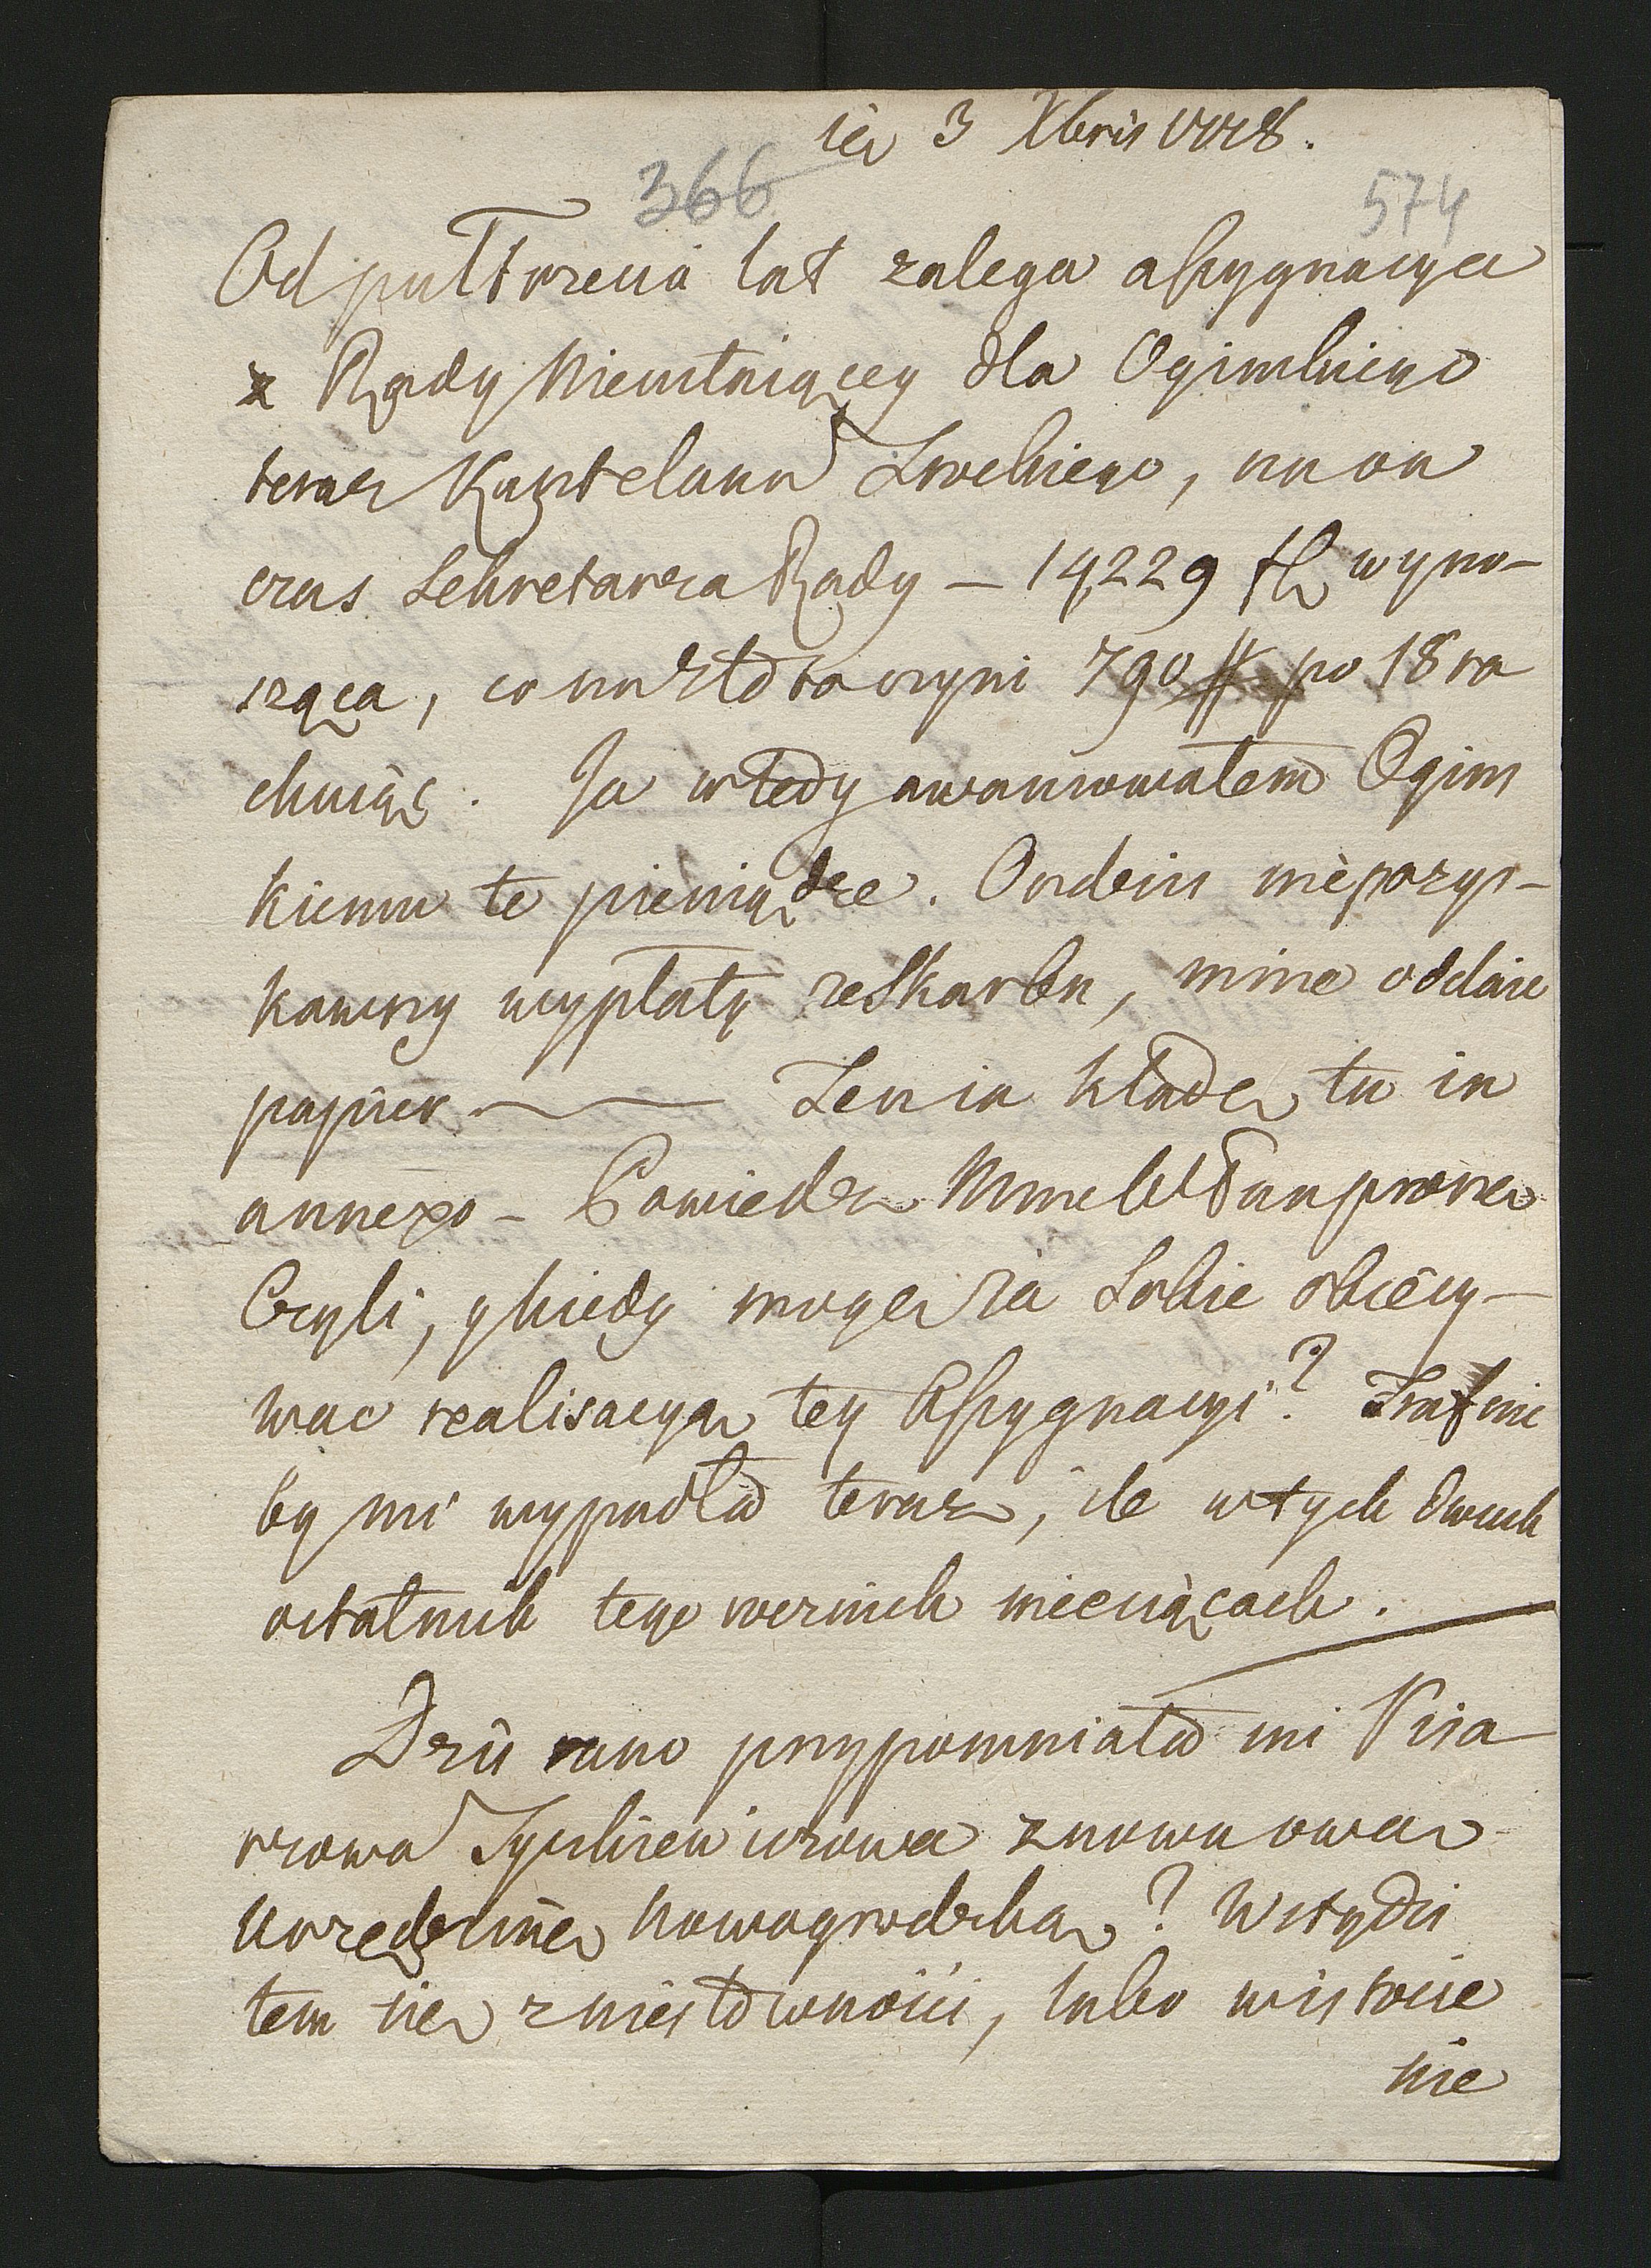 3 Xbris 1778.
366
574
Od pułtrzecia lat zalega assygnacya
z Rady Nieustaiącey dla Oginskiego
teraz Kasztelana Trockiego, na on
czas Sekretarza Rady — 14229 fl wyno-
sząca, co na złoto czyni 790 # po 18 ra
chuiąc. Ja wtedy awansowałem Ogins
kiemu te pieniądze. On dziś nie pozys-
kawszy wypłatę ze Skarbu, mnie oddaie
papier — Ten ia kładę tu in
annexo — Powiedz Mnie WPan proszę
Czyli, y kiedy mogę ia Sobie obiecy-
wac realisacyą tey Assygnacyi? Trafnie
by mi wypadło teraz, ile w tych dwuch
ostatnich tego rocznich miesiącach.
Dziś rano przypomniała mi Pisa
rzowa Tyszkiewiczowa znowu ową
Nowogrodzką? Wstydzi
łem się z niesłowności, lubo w istocie
nie